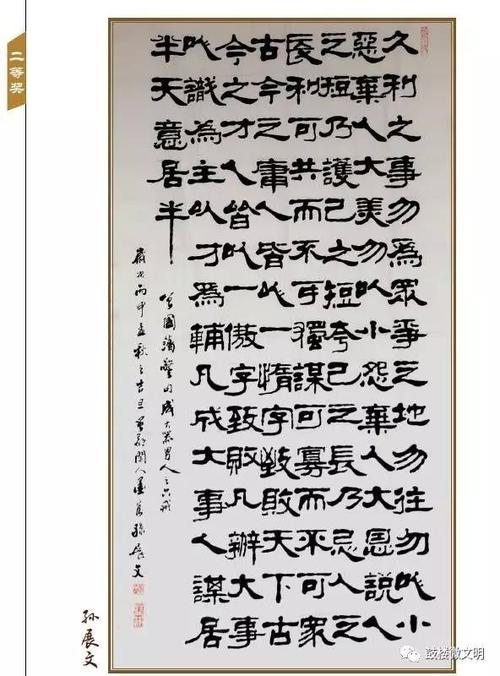 二等奖
久利之事勿為眾爭之地勿往勿以小
惡棄人大美勿以小怨棄人大恩說人
之短乃護己之短夸己之長乃忌人之
長利可共而不可獨謀可寡而不眾
古今之庸人皆以一惰字致敗天下古
今之才人皆以一傲字致敗凡辦大事
以識為主以才為輔凡成大事人謀居
半天意居半
曾國藩 成大器男人之六戒
歲次丙申孟秋之吉旦 閩人 孫展文
孙展文
鼓楼微文明